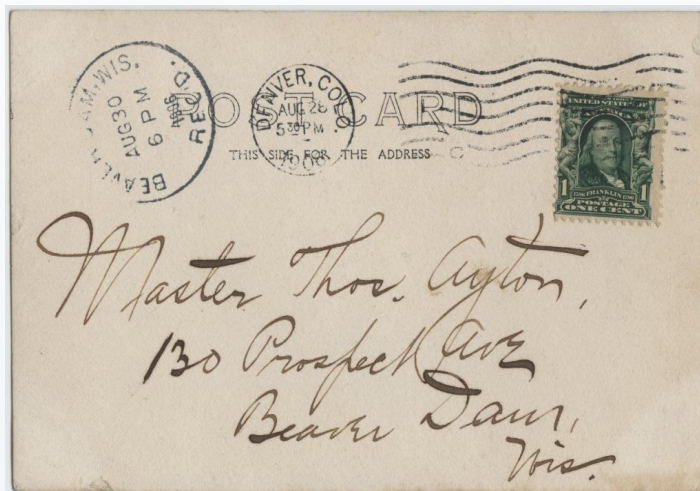 BEAVER DAM, WIS.
AUG 30
6 PM
1906
REC'D.
DENVER, COLO
AUG 28
5 30 PM
1906
POST CARD
THIS SIDE FOR THE ADDRESS
UNITED STATES OF
AMERICA
1 FRANKLIN 1
POSTAGE
ONE CENT
Master Thos. Ayton,
130 Prospect Ave
Beaver Dam,
Wis.